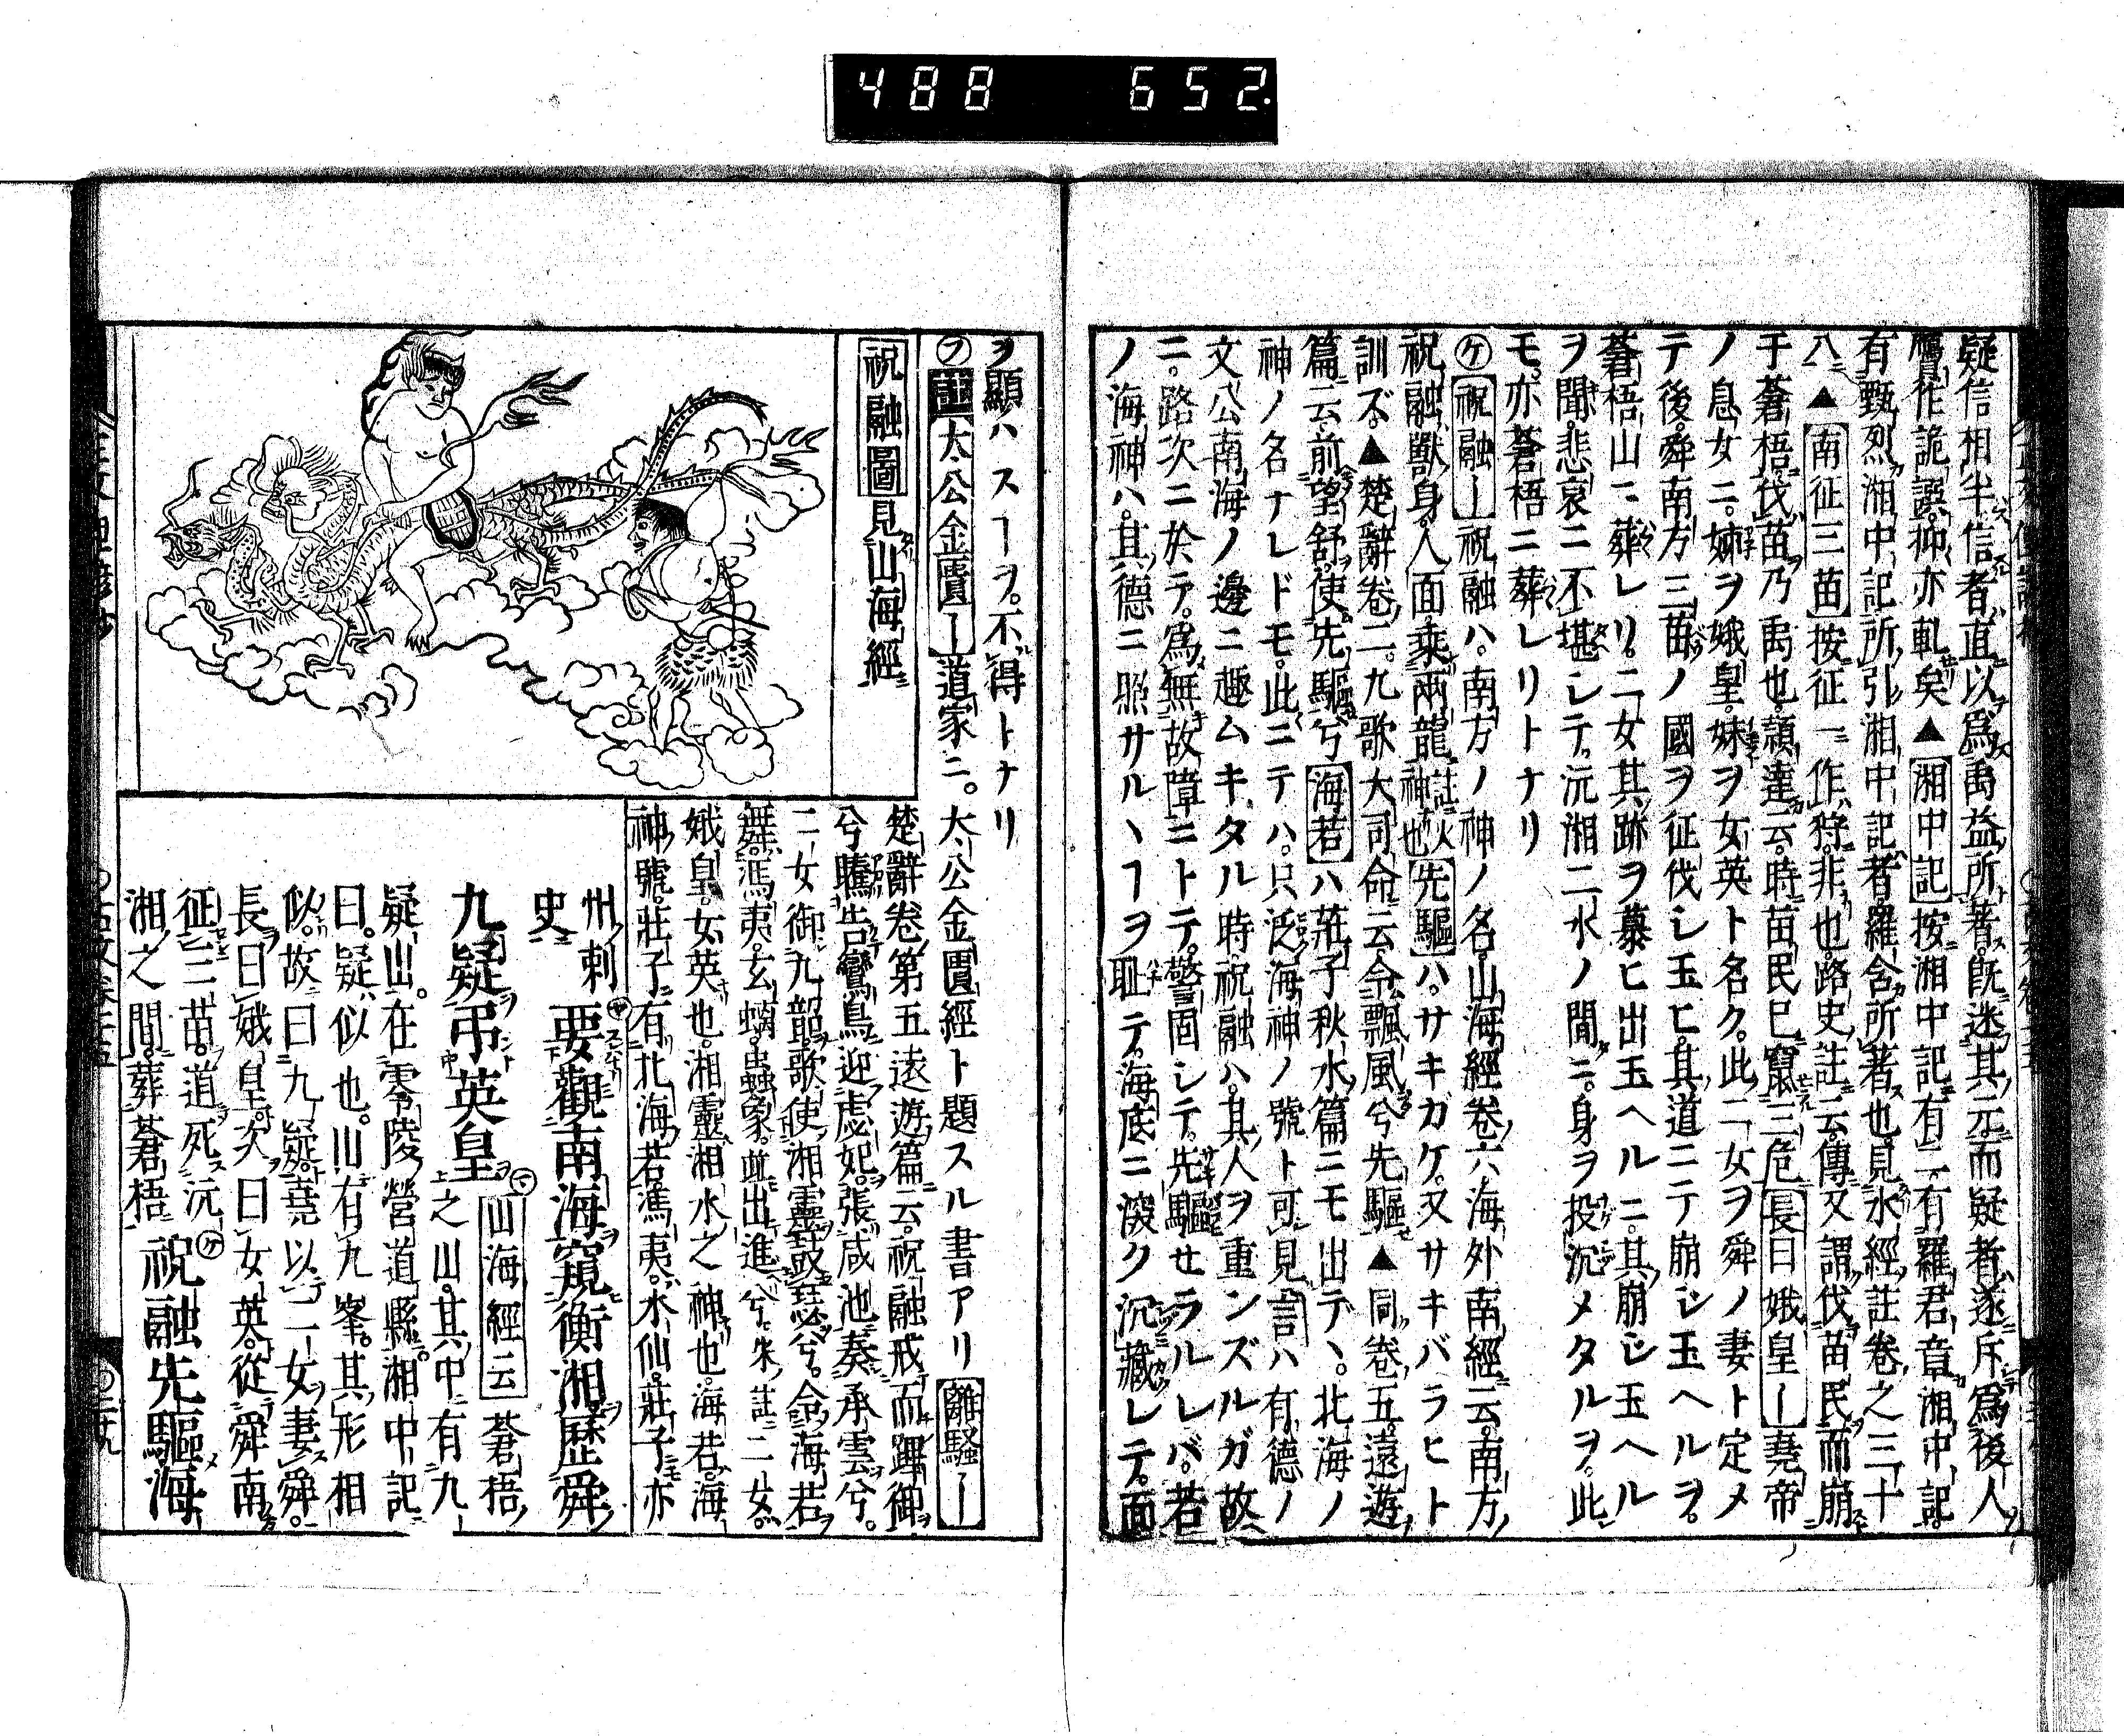 488 652.
疑信相半信者直以爲禹益所著既迷其元而疑者遂斥爲後人
贋作詭譔抑亦軋矣▲湘中記按湘中記有二有羅君章湘中記
有甄烈湘中記所引湘中記者羅含所著也見水經註卷之三十
八▲南征三苗按征一作狩非也路史註云傳又謂伐苗民而崩
于蒼梧伐苗乃禹也頴達云時苗民已竄三危長曰娥皇ー堯帝
ノ息女ニ姉ヲ娥皇妹ヲ女英ト名ク此二女ヲ舜ノ妻ト定メ
テ後舜南方三苗ノ國ヲ征伐シ玉ヒ其道ニテ崩シ玉ヘルヲ
蒼梧山ニ葬レリ二女其跡ヲ慕ヒ出玉ヘルニ其崩シ玉ヘル
ヲ聞悲哀ニ不堪シテ沅湘二水ノ間ニ身ヲ投沉メタルヲ此
モ亦蒼梧ニ葬レリトナリ
㋘祝融ー祝融ハ南方ノ神ノ名山海經卷六海外南經云南方
祝融獸身人面乘兩龍註火神也先驅ハサキガケ又サキバラヒト
訓ズ▲楚辭卷二九歌大司命云令飄風兮先驅▲同卷五遠遊
篇云前望舒使先驅兮海若ハ莊子秋水篇ニモ出テ、北海ノ
神ノ名ナレドモ此ニテハ只泛海神ノ號ト可見言ハ有德ノ
文公南海ノ邊ニ趣ムキタル時祝融ハ其人ヲ重ンズルガ故
ニ路次ニ於テ爲無故障ニトテ警固シテ先驅セラルレバ若
ノ海神ハ其德ニ照サルヽヿヲ恥テ海底ニ深ク沉藏レテ面
ヲ顯ハスヿヲ不得トナリ
㋫太公金匱ー道家ニ太公金匱經ト題スル書アリ離騷ー
祝融圖見山海經
楚辭卷第五遠遊篇云祝融戒而蹕御
兮騰告鸞鳥迎虙妃張咸池奏承雲兮
二女御九韶歌使湘靈鼓瑟兮令海若
舞馮夷玄螭蟲象並出進兮朱註二女
娥皇女英也湘靈湘水之神也海若海
神號莊子有北海若馮夷水仙莊子亦
州刺史
要觀南海窺衡湘歷舜
九疑弔英皇
山海經云蒼梧
之山其中有九
疑山在零陵營道縣湘中記
曰疑似也山有九峯其形相
似故曰九疑堯以二女妻舜
長曰娥皇次曰女英從舜南
征三苗道死沅
湘之間葬蒼梧
祝融先驅海